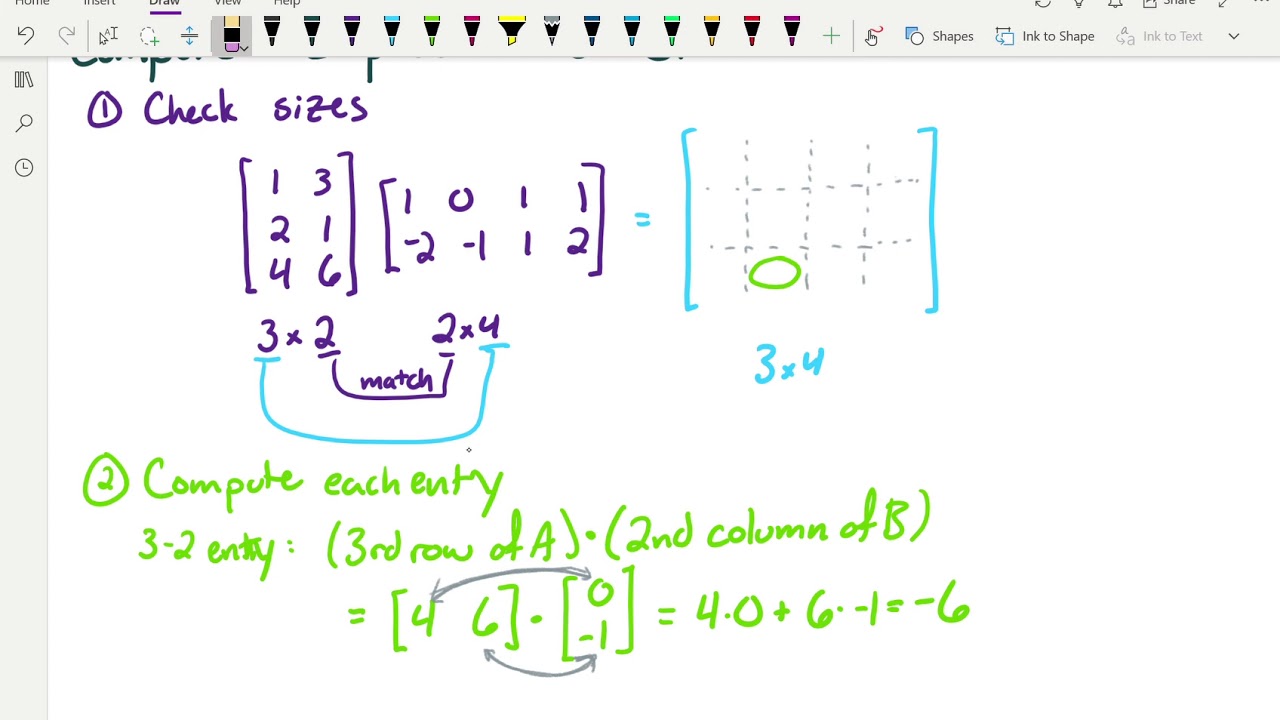 Home Insert Draw View Help Share
Shapes Ink to Shape Ink to Text
① Check sizes
[1 3] [1 0 1 1]
[2 1] [-2 -1 1 2] =
[4 6]
3 × 2 2 × 4
match
3 × 4
② Compute each entry
3-2 entry: (3rd row of A) · (2nd column of B)
= [4 6] · [0 -1] = 4·0 + 6·-1 = -6